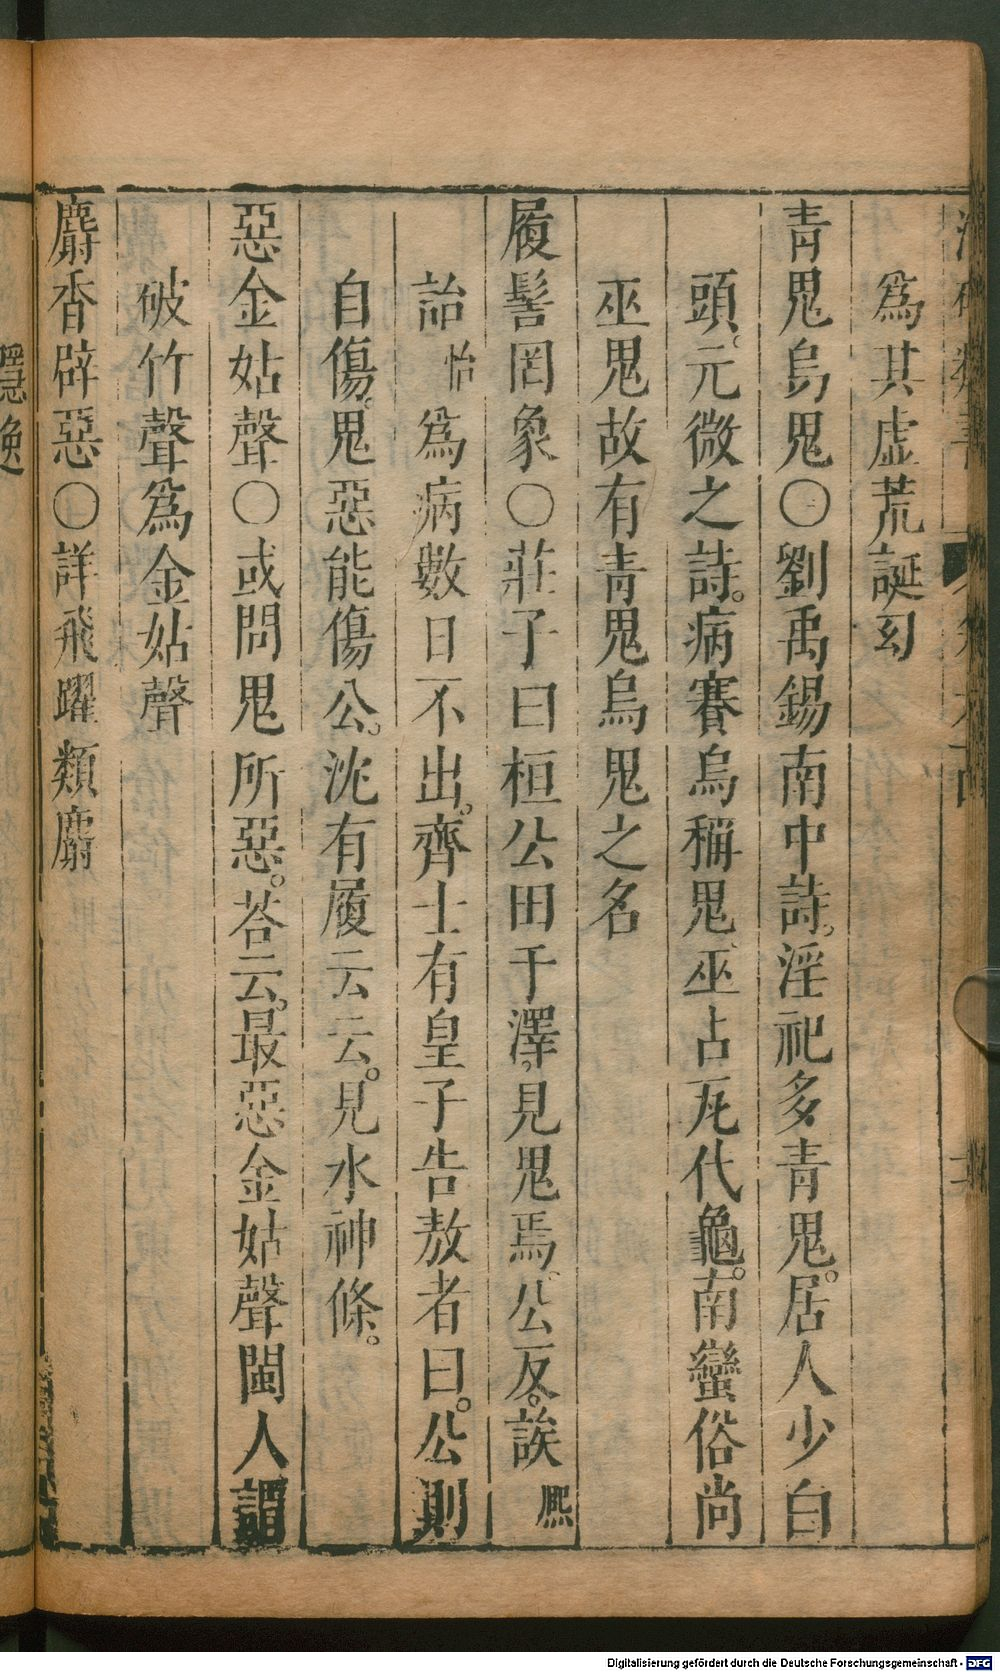 為其虛荒誕幻
青鬼烏鬼○劉禹錫南中詩。淫祀多青鬼。居人少白
頭。元微之詩。病賽烏稱鬼、巫占瓦代龜。南蠻俗尚
巫鬼故有青鬼烏鬼之名
履髻罔象○莊子曰桓公田于澤，見鬼焉、公反。誒熙
詒怡為病數日不出。齊士有皇子告敖者曰。公則
自傷。鬼惡能傷公。沈有履云云。見水神條。
惡金姑聲○或問鬼所惡。荅云。最惡金姑聲閩人謂
破竹聲為金姑聲
麝香辟惡○詳飛躍類麝
Digitalisierung gefördert durch die Deutsche Forschungsgemeinschaft - DFG